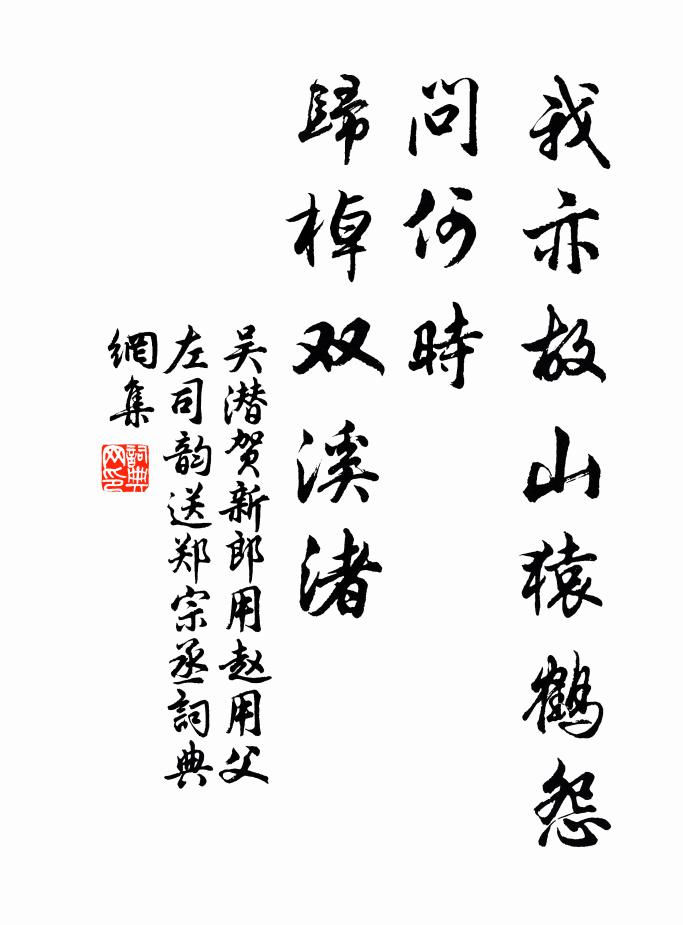 我亦故山猿鹤怨
問何時
歸棹双溪渚
吴潜贺新郎用赵用父
左司韵送郑宗丞詞典
網集
詞典网印